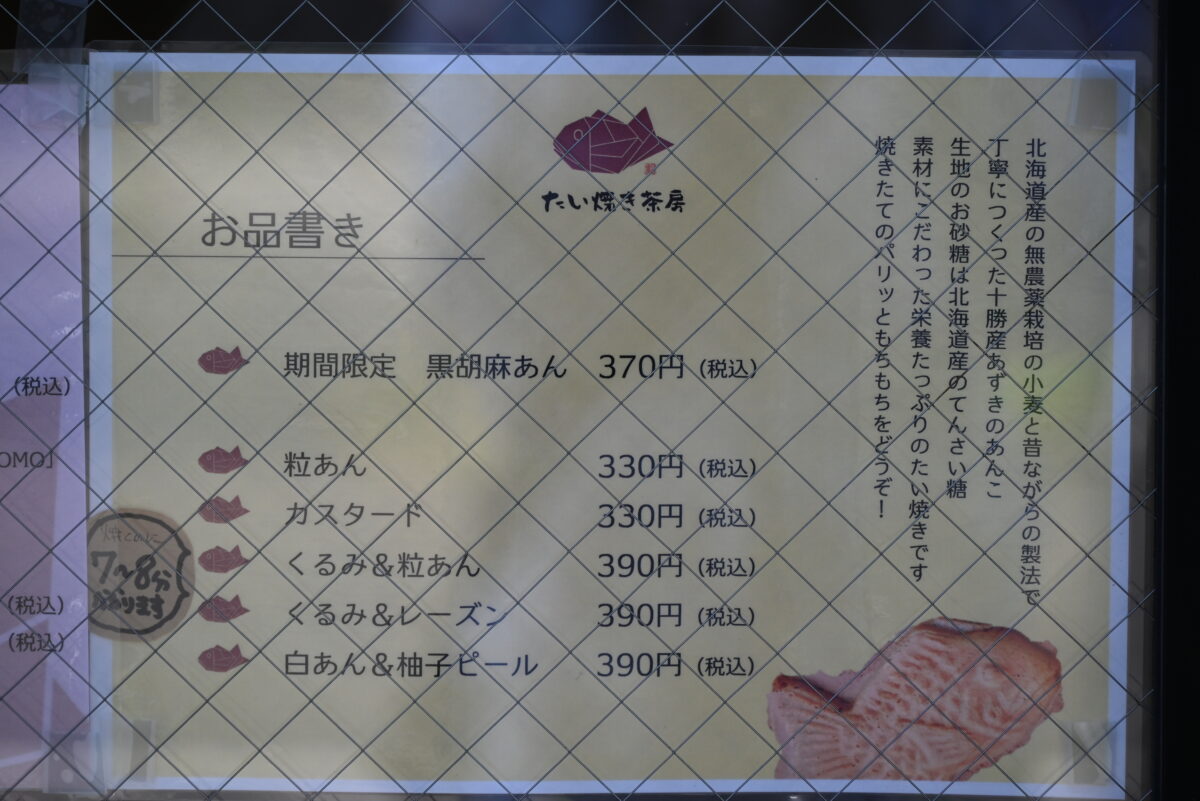 たい焼き茶房
お品書き
期間限定 黒胡麻あん 370円 (税込)
粒あん 330円 (税込)
カスタード 330円 (税込)
くるみ&粒あん 390円 (税込)
くるみ&レーズン 390円 (税込)
白あん&柚子ピール 390円 (税込)
北海道産の無農薬栽培の小麦と昔ながらの製法で
丁寧につくった十勝産あずきのあんこ
生地のお砂糖は北海道産のてんさい糖
素材にこだわった栄養たっぷりのたい焼きです
焼きたてのパリッともちもちをどうぞ!
焼くのに
7〜8分
かかります
(税込)
OMO」
(税込)
(税込)